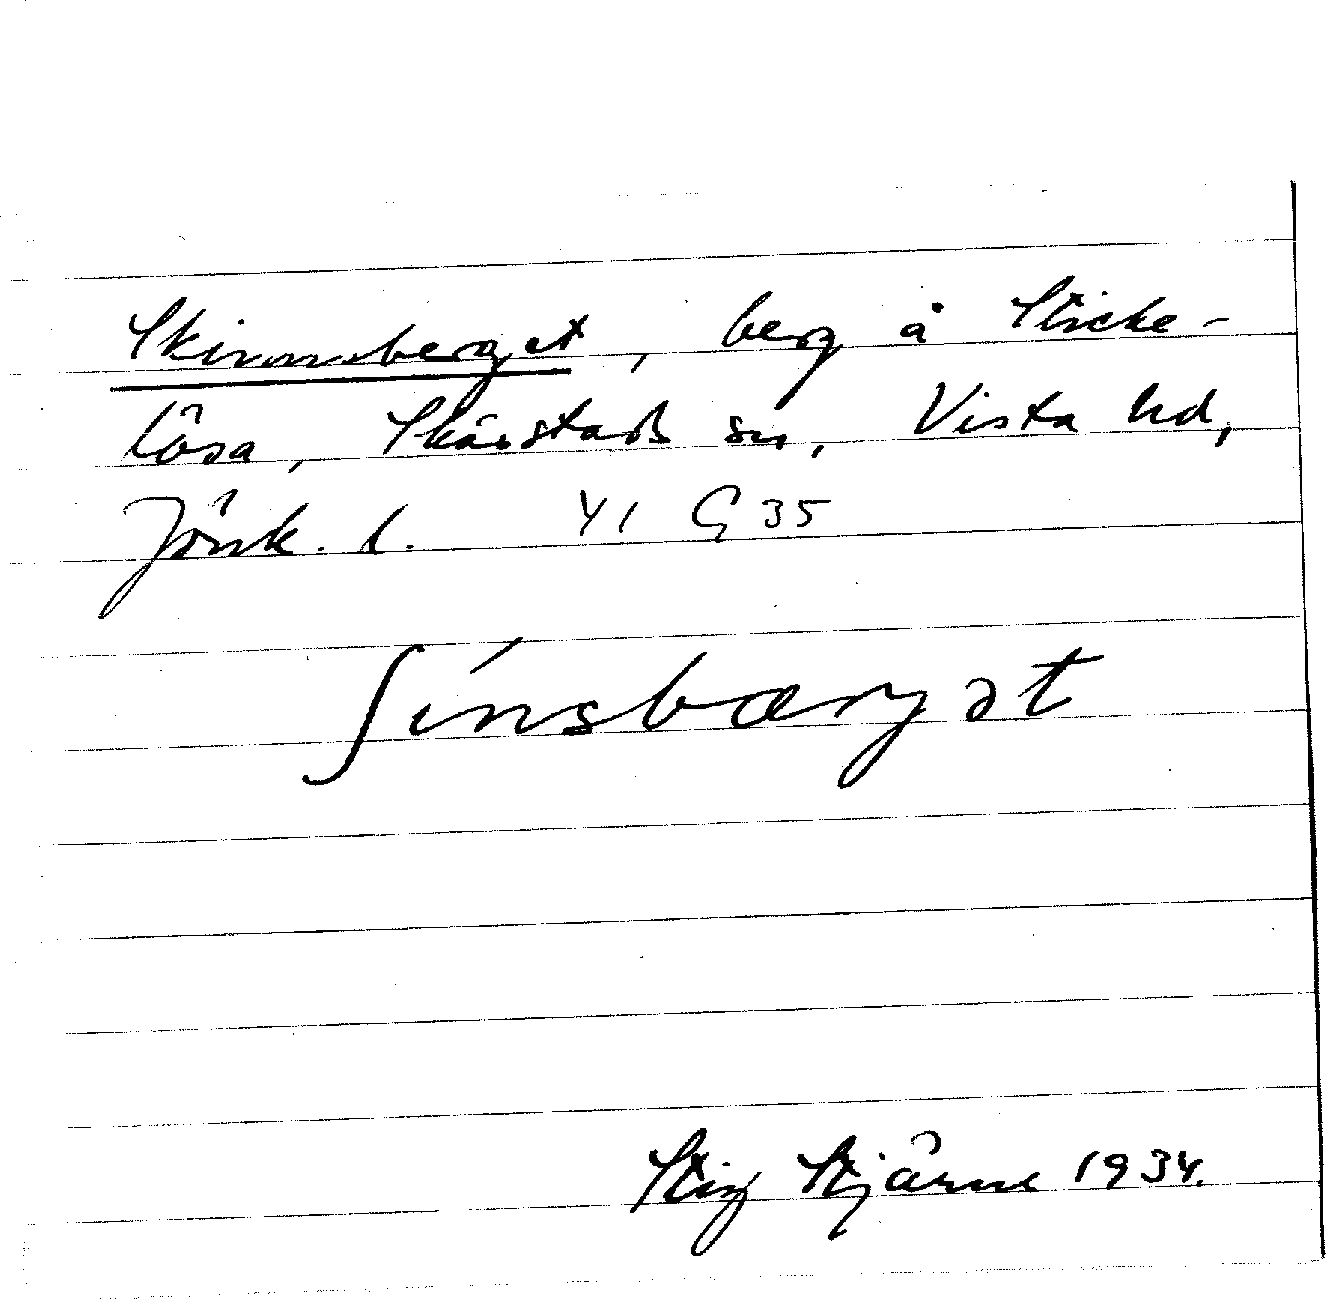 Skinnsberget, berg å Sticke-
lösa, Skärstads sn, Vista hd,
Jönk. l. 41 G 35
ʃínsbærgət
Stig Stjärne 1934.